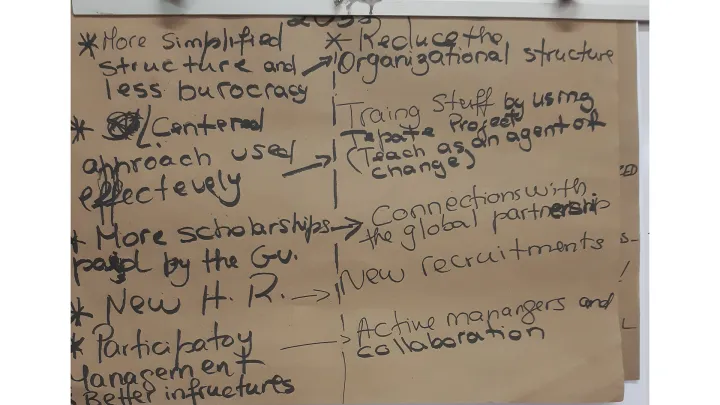 * More simplified
structure and
less burocracy
* /Centered
approach used
effectevely
* More scholarships
payd by the Gv.
* New H. R.
* Participatoy
Management
Better infructures
* Reduce the
Organizational structure
Traing Stuff by using
Tepate Project
(Teach as an agent of
change)
Connections with
the global partnership
New recruitments
Active mapangers and
collaboration